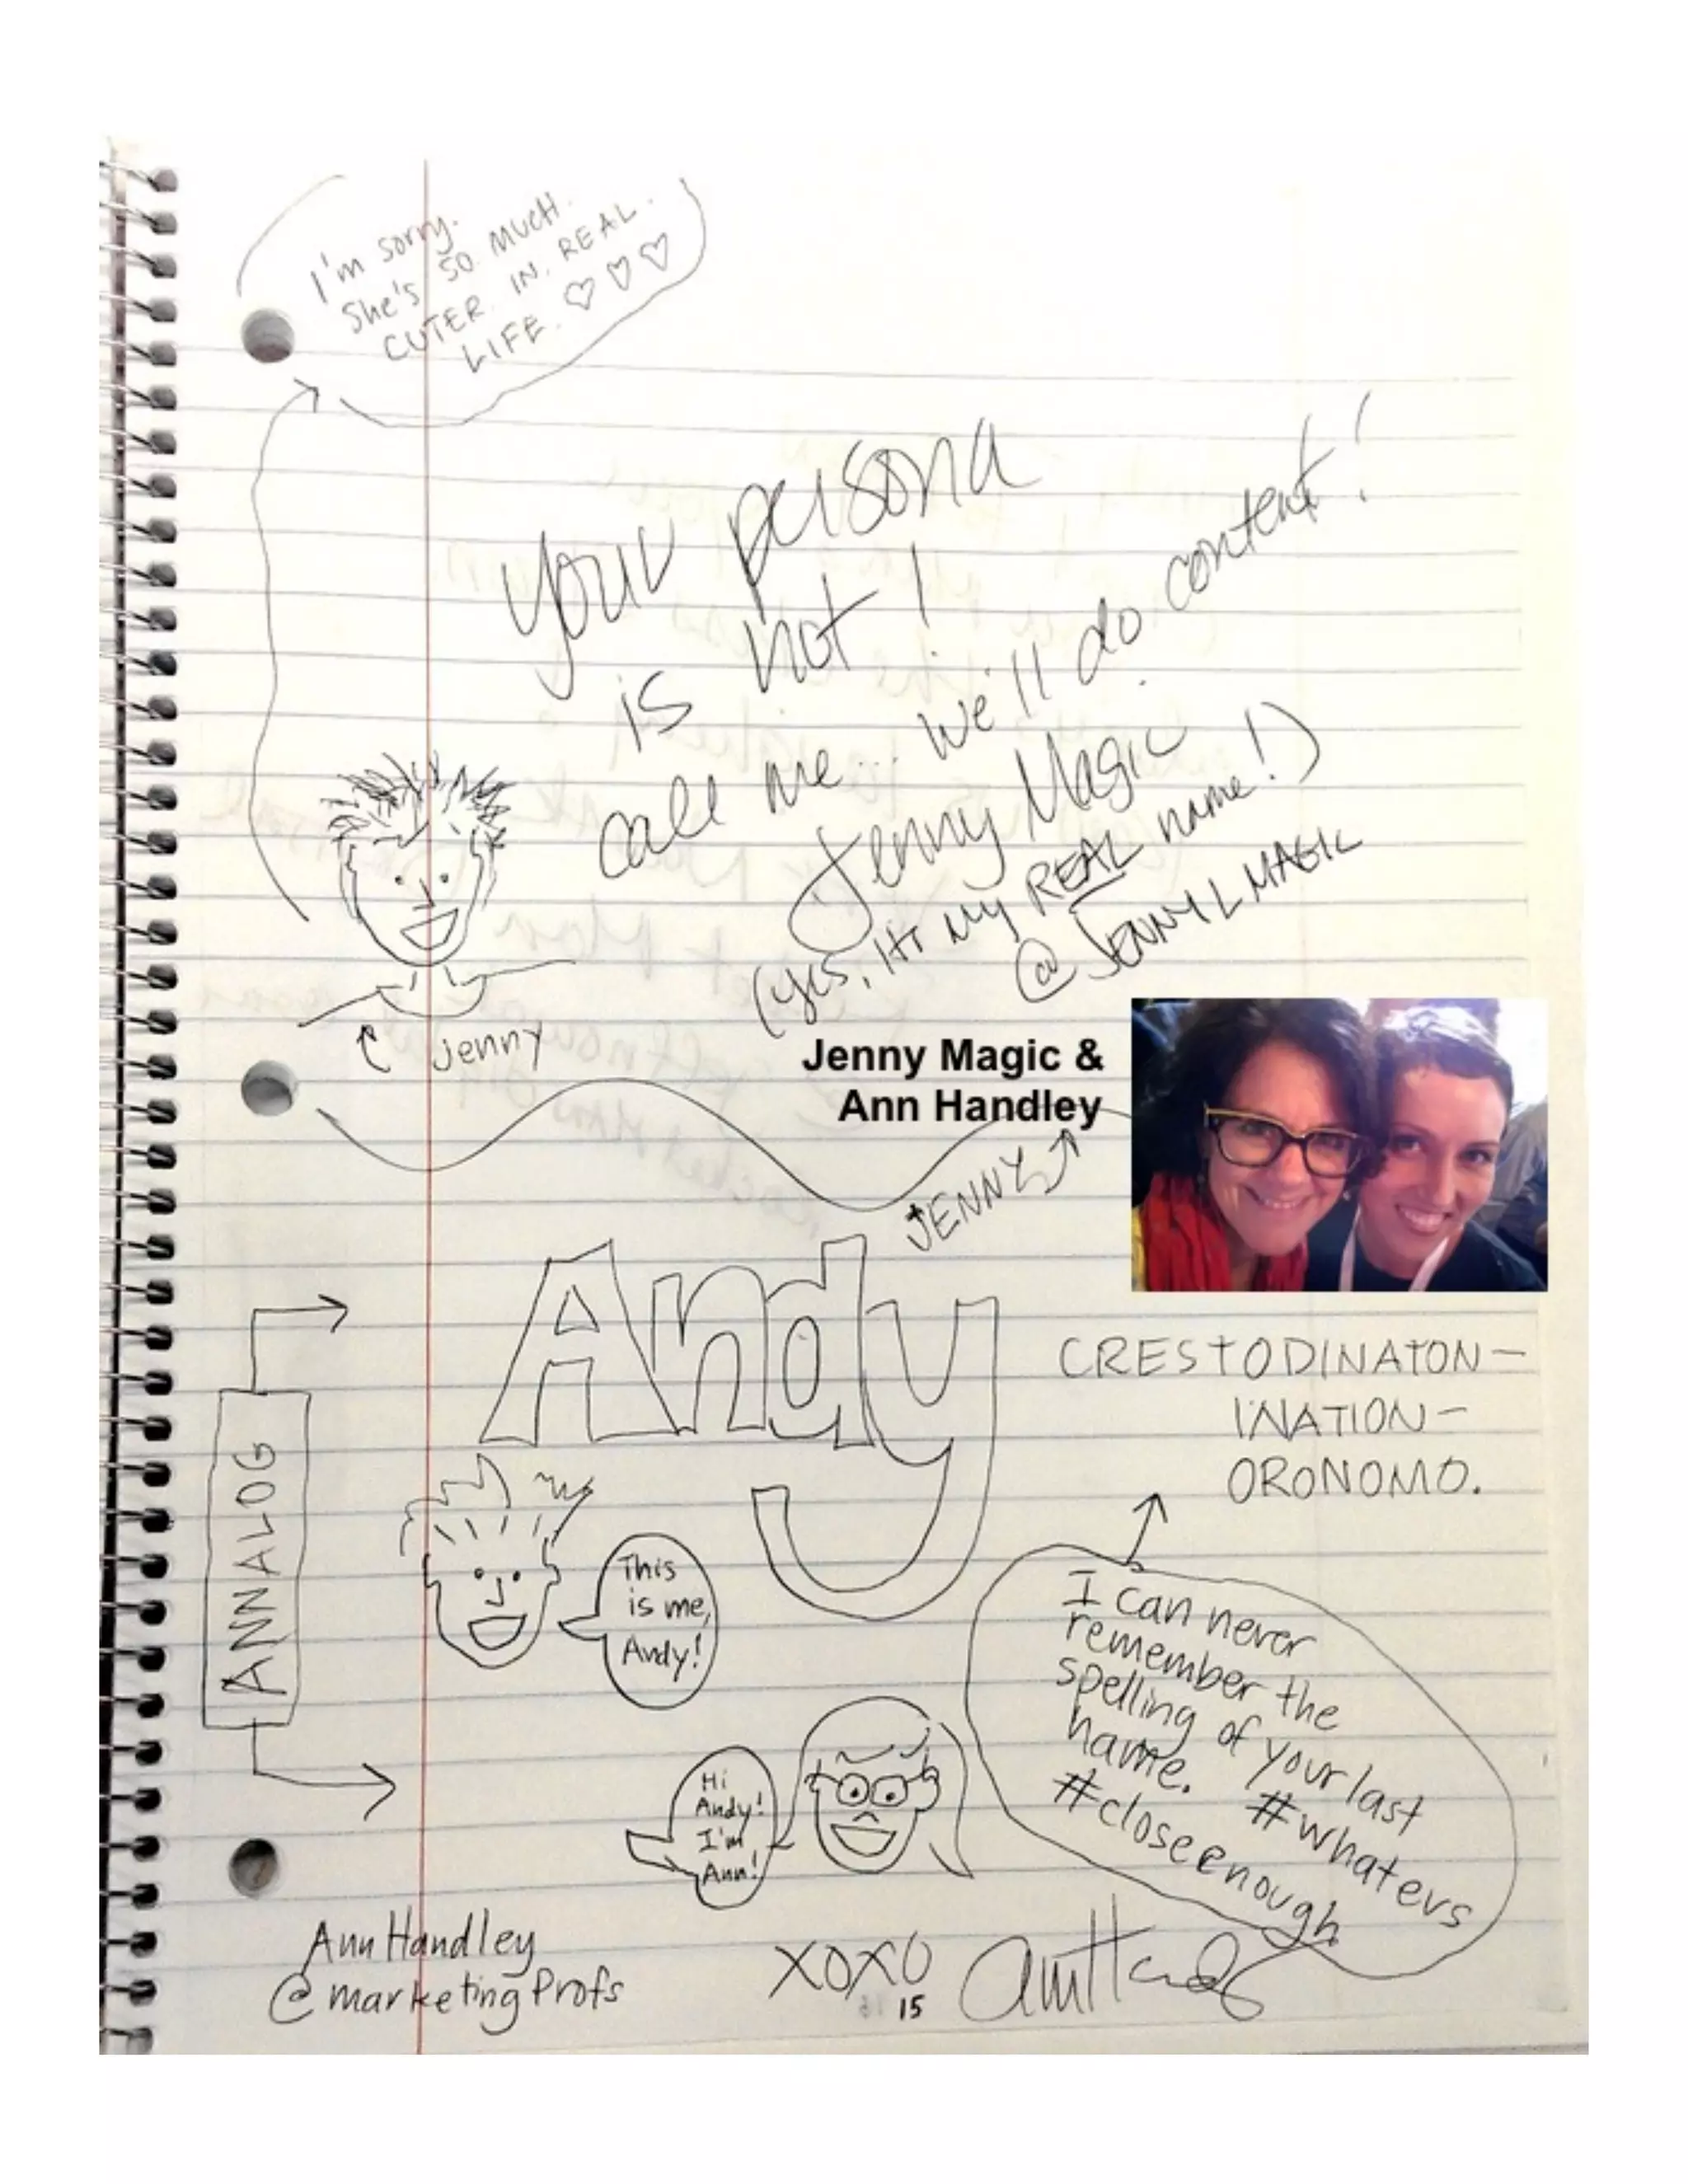 I'm sorry.
She's SO MUCH.
CUTER. IN. REAL.
LIFE. ♡ ♡ ♡
your persona
is not!
call me... we'll do content!
Jenny Magic
(yes, it's my REAL name!)
@JENNYLMAGIC
Jenny
Jenny Magic &
Ann Handley
JENNY
Andy
CRESTODINATON-
INATION-
ORONOMO.
ANNALOG
This
is me,
Andy!
I can never
remember the
spelling of your last
name. #whatevs
#closeenough
Hi
Andy!
I'm
Ann!
Ann Handley
@marketingProfs
XOXO
15
Ann Handley